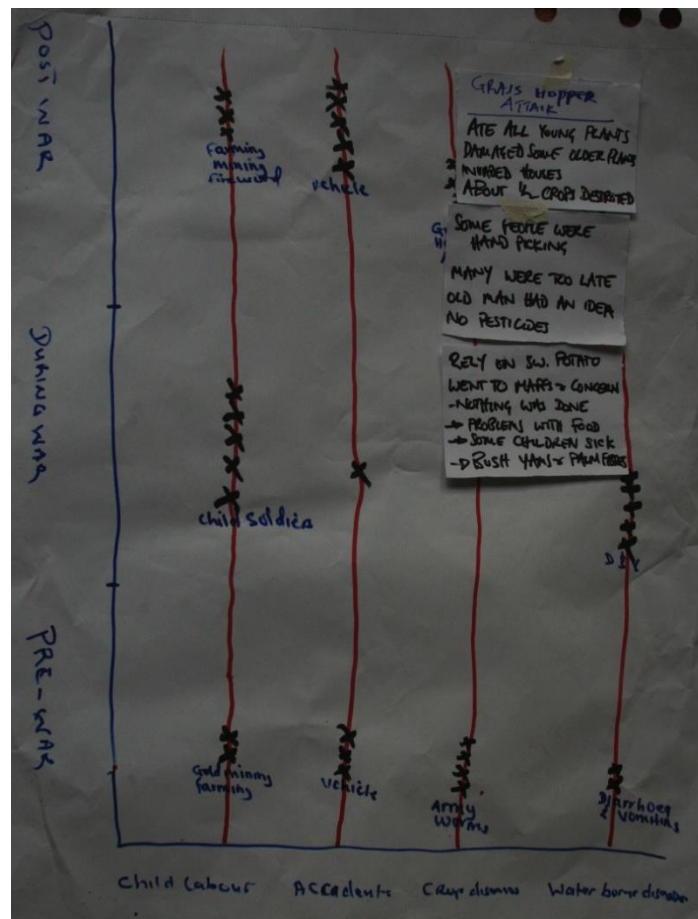 POST WAR
Farming
mining
firewood
vehicle
GRASS HOPPER
ATTAIK
ATE ALL YOUNG PLANTS
DAMAGED SOME OLDER PLANTS
INVADED HOUSES
ABOUT 1/2 CROPS DESTROYED
SOME PEOPLE WERE
HAND PICKING
MANY WERE TOO LATE
OLD MAN HAD AN IDEA
NO PESTICIDES
DURING WAR
child soldier
RELY ON SW. POTATO
WENT TO MAFFS & CONCERN
- NOTHING WAS DONE
→ PROBLEMS WITH FOOD
→ SOME CHILDREN SICK
→ BUSH YAMS &
PRE-WAR
Gold mining
farming
vehicle
Army
worms
Diarrhoea
& vomiting
Child Labour
Accadents
Water borne